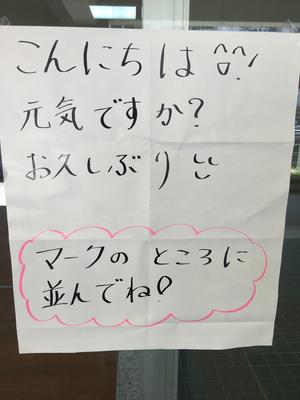 こんにちは ^^/
元気ですか?
お久しぶり
マークの ところに
並んでね!